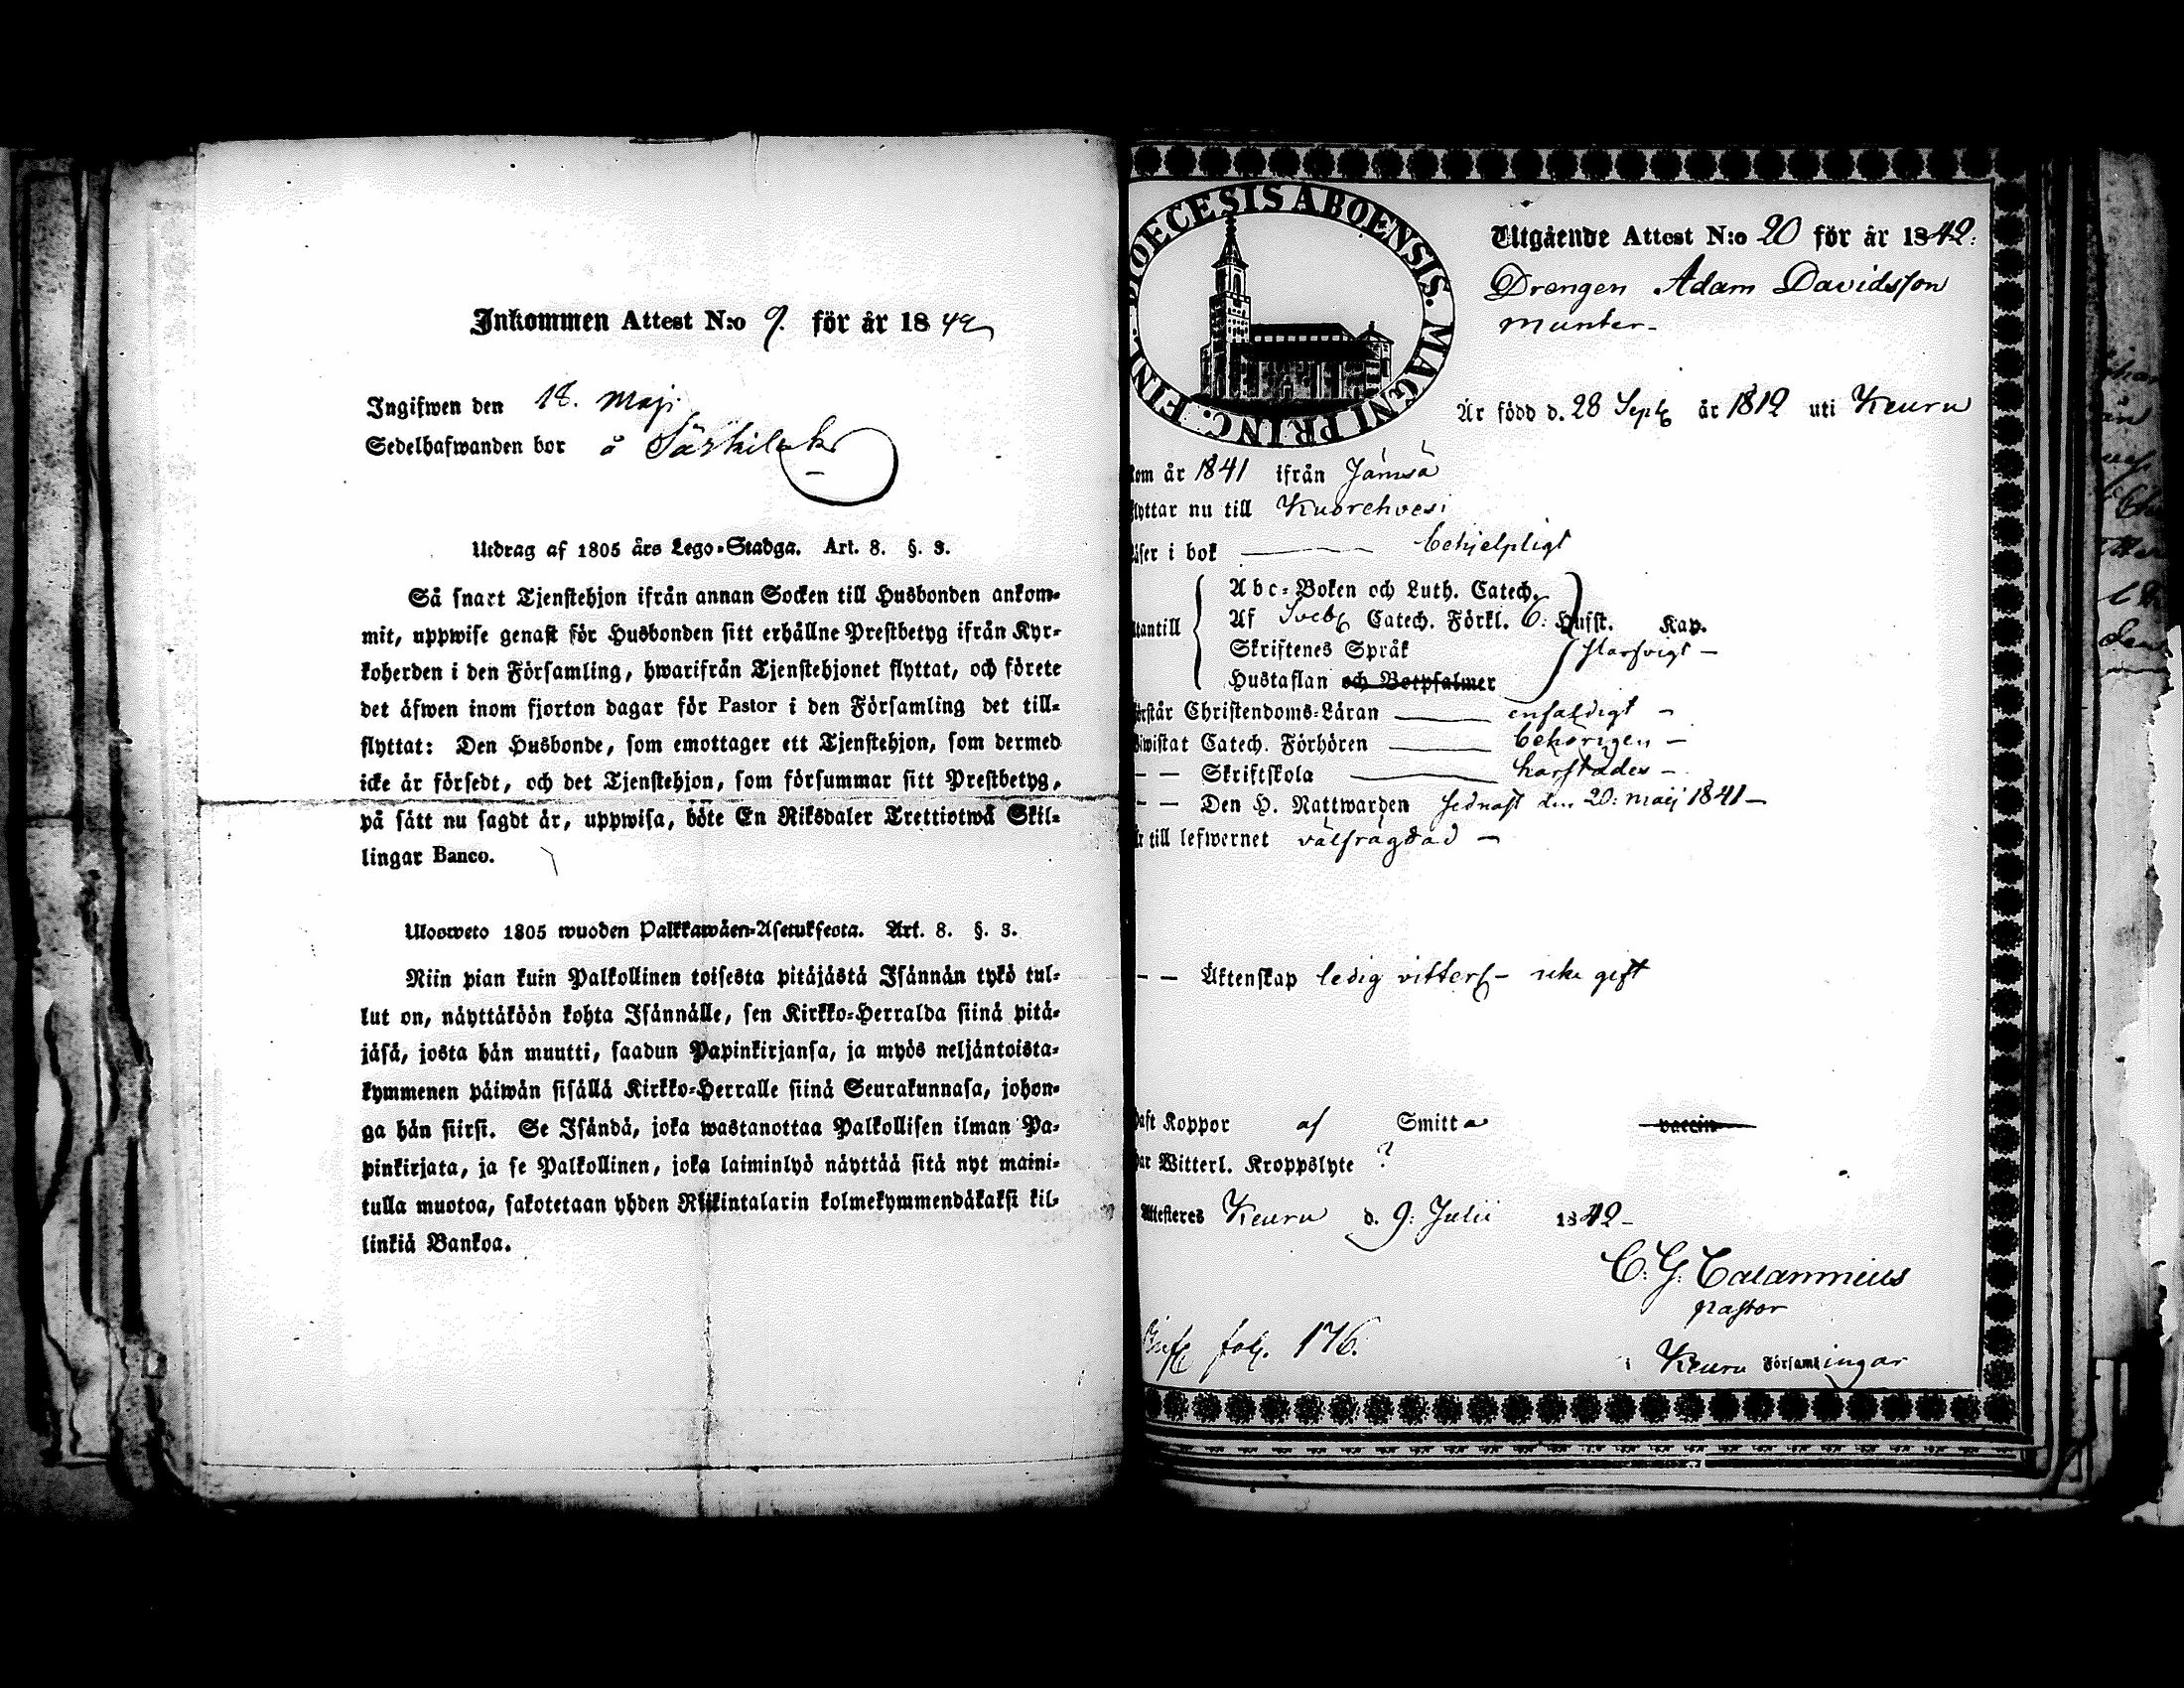 Inkommen Attest N:o 9. för år 1842
Ingifwen den 18. Maji
Sedelhafwanden bor å Särkilak
Utdrag af 1805 års Lego-Stadga. Art. 8. §. 3.
Så snart Tjenstehjon ifrån annan Socken till Husbonden ankom-
mit, uppwise genast för Husbonden sitt erhållne Prestbetyg ifrån Kyr-
koherden i den Församling, hwarifrån Tjenstehjonet flyttat, och förete
det äfwen inom fjorton dagar för Pastor i den Församling det till-
flyttat: Den Husbonde, som emottager ett Tjenstehjon, som dermed
icke är försedt, och det Tjenstehjon, som försummar sitt Prestbetyg,
på sätt nu sagdt är, uppwisa, böte En Riksdaler Trettiotwå Skil-
lingar Banco.
Uloosweto 1805 wuoden Palkkawäen-Asetuksesta. Art. 8. §. 3.
Niin pian kuin Palkollinen toisesta pitäjästä Isännän tykö tul-
lut on, näyttäköön kohta Isännälle, sen Kirkko-Herralda siinä pitä-
jäsä, josta hän muutti, saadun Papinkirjansa, ja myös neljäntoista-
kymmenen päiwän sisällä Kirkko-Herralle siinä Seurakunnasa, johon-
ga hän siirsi. Se Isändä, joka wastanottaa Palkollisen ilman Pa-
pinkirjata, ja se Palkollinen, joka laiminlyö näyttää sitä nyt maini-
tulla muotoa, sakotetaan yhden Riikintalarin kolmekymmendäkaksi kil-
linkiä Bankoa.
DIOECESIS ABOENSIS. MAGNI PRINC. FINL.
Utgående Attest N:o 20 för år 1842:
Drengen Adam Davidsson
Munter
Är född d. 28 Sept år 1812 uti Keuru
kom år 1841 ifrån Jämsä
flyttar nu till Kuorehvesi
läser i bok behjelpligt
Abc-Boken och Luth. Catech.
utantill Af Sveb Catech. Förkl. 6: Hufst. Kap.
Skriftenes Språk
Hustaflan och Botpsalmer
förstår Christendoms-Läran enfaldigt
biwistat Catech. Förhören behörigen
— — Skriftskola härstädes
— — Den H. Nattwarden sednast den 20: Maij 1841
är till lefwernet välfrägdad
— — Äktenskap ledig vitterl icke gift
haft Koppor af Smitta vaccin
har Witterl. Kroppslyte ?
Attesteres Keuru d. 9: Julii 1842
C. G. Calamnius
Pastor
fol. 176.
i Keuru Församlingar